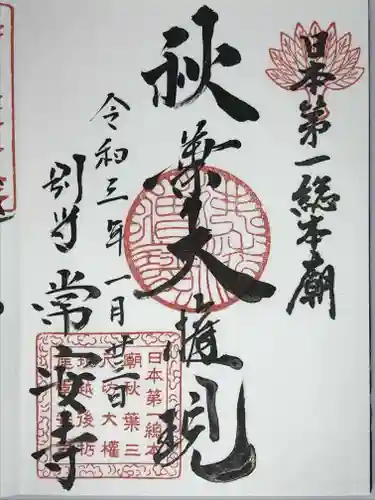 日本第一総本廟
秋葉大権現
令和三年一月廿二日
別当 常安寺
日本第一総本
廟秋葉三
尺坊大權
現越後栃